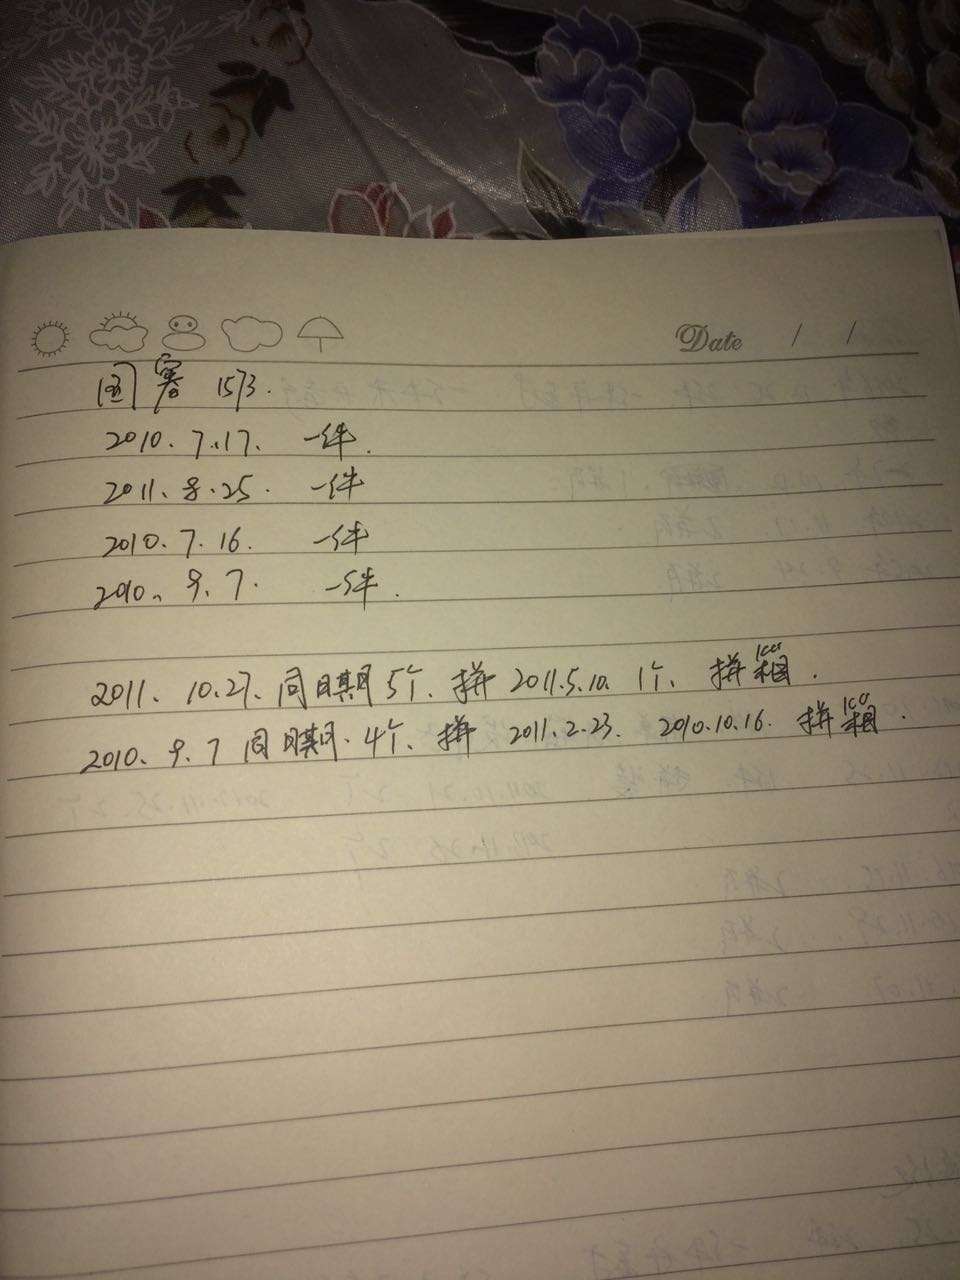 Date / /
国窖 1573.
2010.7.17. 一件.
2011.8.25. 一件
2010.7.16. 一件
2010.9.7. 一件.
2011.10.27.同日期5个.拼2011.5.10.1个.拼箱.
2010.9.7同日期.4个.拼2011.2.23. 2010.10.16.拼箱.